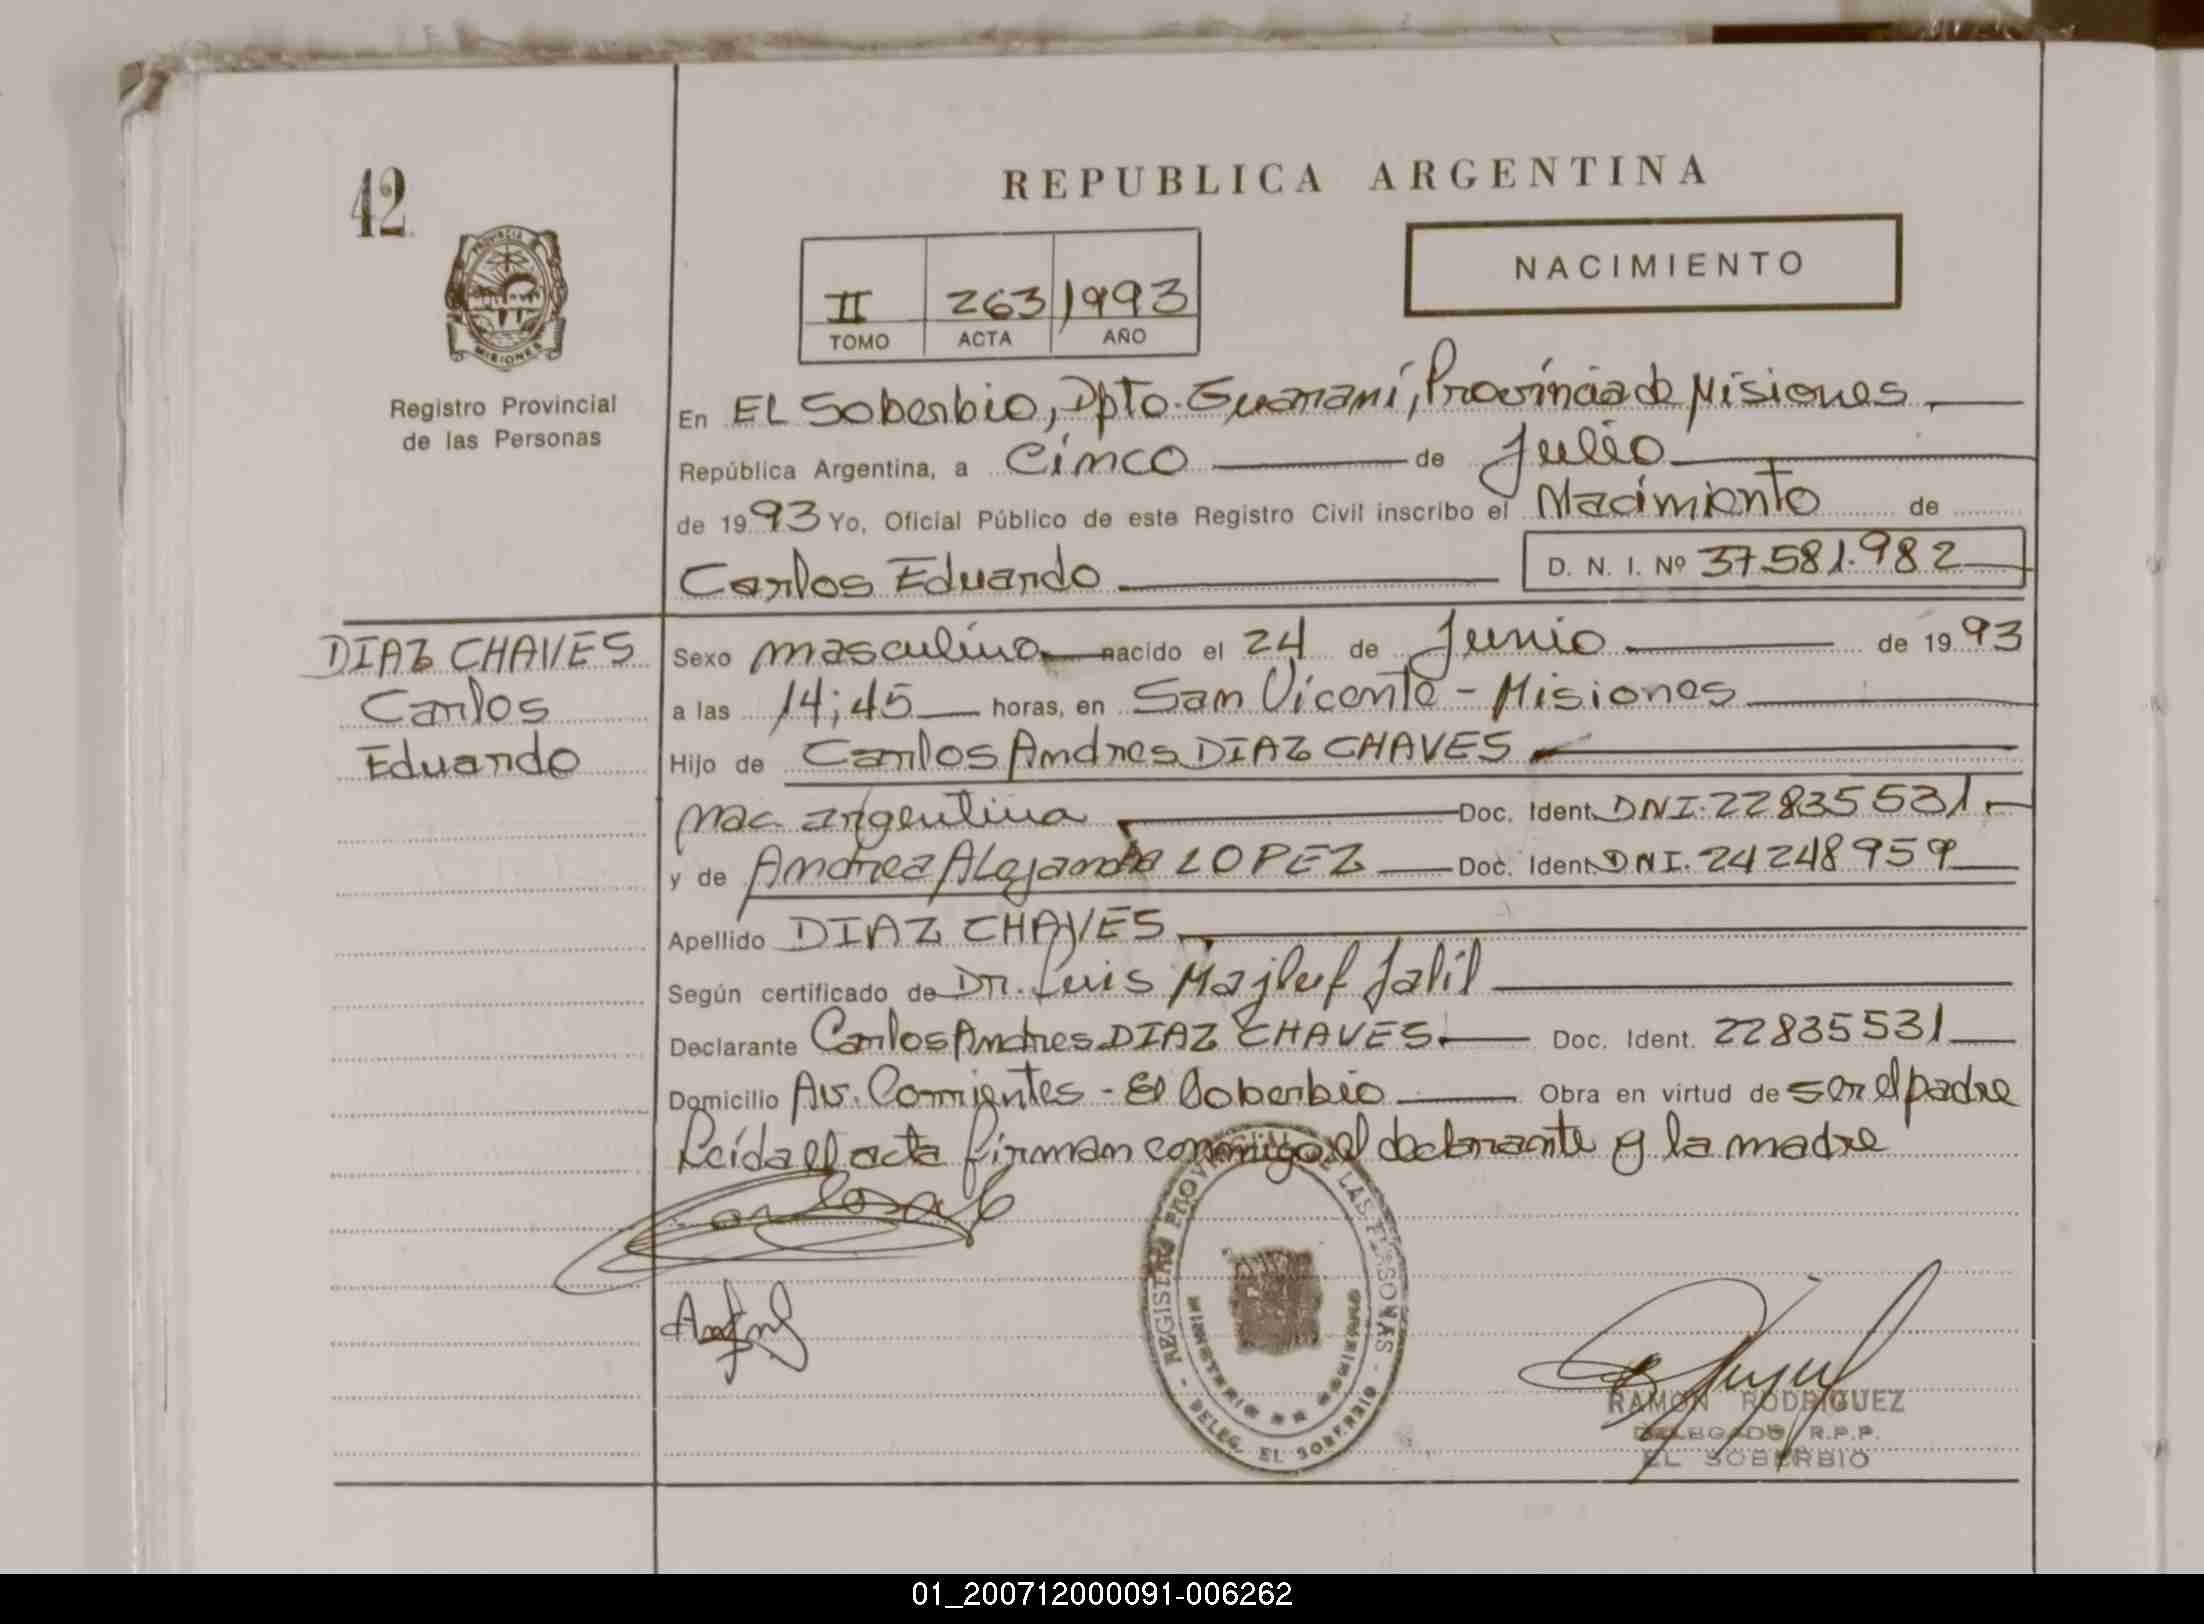 42
PROVINCIA DE
MISIONES
Registro Provincial
de las Personas
REPUBLICA ARGENTINA
NACIMIENTO
II 263 1993
TOMO ACTA AÑO
En EL Soberbio, Dpto. Guaraní, Provincia de Misiones
República Argentina, a Cinco de Julio
de 1993 Yo, Oficial Público de este Registro Civil inscribo el Nacimiento de
Carlos Eduardo D. N. I. Nº 37.581.982
DIAZ CHAVES
Carlos
Eduardo
Sexo masculino nacido el 24 de Junio de 1993
a las 14;45 horas, en San Vicente - Misiones
Hijo de Carlos Andres DIAZ CHAVES
nac. argentina Doc. Ident. DNI. 22835531
y de Andrea Alejandra LOPEZ Doc. Ident. DNI. 24248959
Apellido DIAZ CHAVES
Según certificado de Dr. Luis Majluf Jalil
Declarante Carlos Andres DIAZ CHAVES Doc. Ident. 22835531
Domicilio Av. Corrientes - El Soberbio Obra en virtud de ser el padre
Leída el acta firman conmigo el declarante y la madre
REGISTRO PROVINCIAL DE LAS PERSONAS
MINISTERIO DE GOBIERNO
- DELEG. EL SOBERBIO -
RAMON RODRIGUEZ
DELEGADO R.P.P.
EL SOBERBIO
01_200712000091-006262